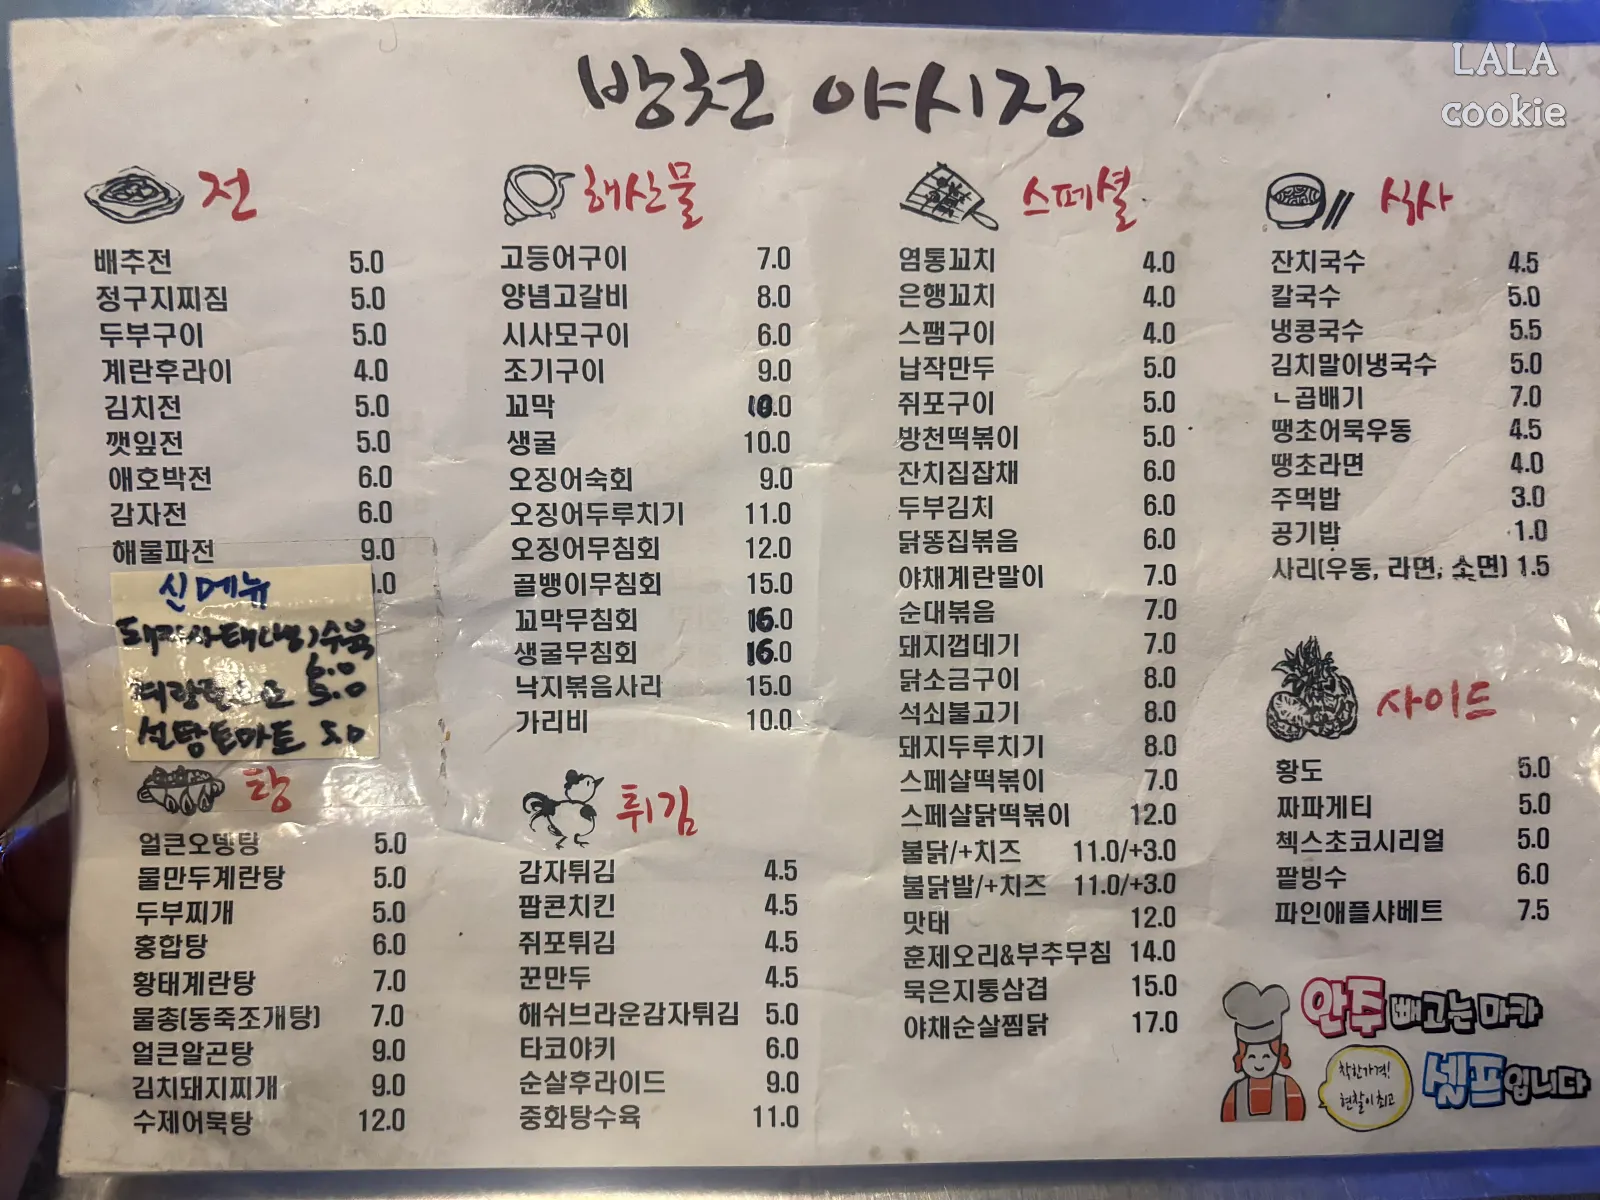 LALA
cookie
방천 야시장
전
배추전 5.0
정구지찌짐 5.0
두부구이 5.0
계란후라이 4.0
김치전 5.0
깻잎전 5.0
애호박전 6.0
감자전 6.0
해물파전 9.0
신메뉴
돼지사태냉수육
6.0
5.0
설탕토마토 5.0
탕
얼큰오뎅탕 5.0
물만두계란탕 5.0
두부찌개 5.0
홍합탕 6.0
황태계란탕 7.0
물총(동죽조개탕) 7.0
얼큰알곤탕 9.0
김치돼지찌개 9.0
수제어묵탕 12.0
해산물
고등어구이 7.0
양념고갈비 8.0
시사모구이 6.0
조기구이 9.0
꼬막 10.0
생굴 10.0
오징어숙회 9.0
오징어두루치기 11.0
오징어무침회 12.0
골뱅이무침회 15.0
꼬막무침회 16.0
생굴무침회 16.0
낙지볶음사리 15.0
가리비 10.0
튀김
감자튀김 4.5
팝콘치킨 4.5
쥐포튀김 4.5
꾼만두 4.5
해쉬브라운감자튀김 5.0
타코야키 6.0
순살후라이드 9.0
중화탕수육 11.0
스페셜
염통꼬치 4.0
은행꼬치 4.0
스팸구이 4.0
납작만두 5.0
쥐포구이 5.0
방천떡볶이 5.0
잔치집잡채 6.0
두부김치 6.0
닭똥집볶음 6.0
야채계란말이 7.0
순대볶음 7.0
돼지껍데기 7.0
닭소금구이 8.0
석쇠불고기 8.0
돼지두루치기 8.0
스페샬떡볶이 7.0
스페샬닭떡볶이 12.0
불닭/+치즈 11.0/+3.0
불닭발/+치즈 11.0/+3.0
맛태 12.0
훈제오리&부추무침 14.0
묵은지통삼겹 15.0
야채순살찜닭 17.0
식사
잔치국수 4.5
칼국수 5.0
냉콩국수 5.5
김치말이냉국수 5.0
ㄴ곱배기 7.0
땡초어묵우동 4.5
땡초라면 4.0
주먹밥 3.0
공기밥 1.0
사리(우동, 라면, 소면) 1.5
사이드
황도 5.0
짜파게티 5.0
첵스초코시리얼 5.0
팥빙수 6.0
파인애플샤베트 7.5
안주빼고는 마카
셀프입니다
착한가격!
현찰이 최고